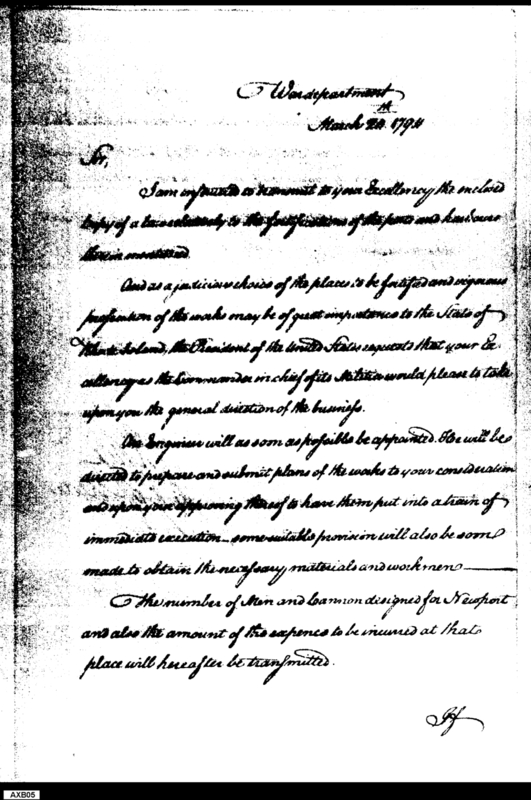 War department
March 24th 1794
Sir,
I am instructed to transmit to your Excellency the enclosed
Copy of a law relatively to the fortifications of the ports and harbours
therein mentioned.
And as a judicious choice of the places to be fortified and vigorous
prosecution of the works may be of great importance to the State of
Rhode Island, the President of the United States requests that your Ex
cellency as the Commander in chief of its Militia would please to take
upon you the general direction of the business.
An Engineer will as soon as possible be appointed. He will be
directed to prepare and submit plans of the works to your consideration
and upon your approving thereof to have them put into a train of
immediate execution – some suitable provision will also be soon
made to obtain the necessary materials and workmen
The number of Men and Cannon designed for Newport
and also the amount of the expence to be incurred at that
place will hereafter be transmitted.
If
AXB05